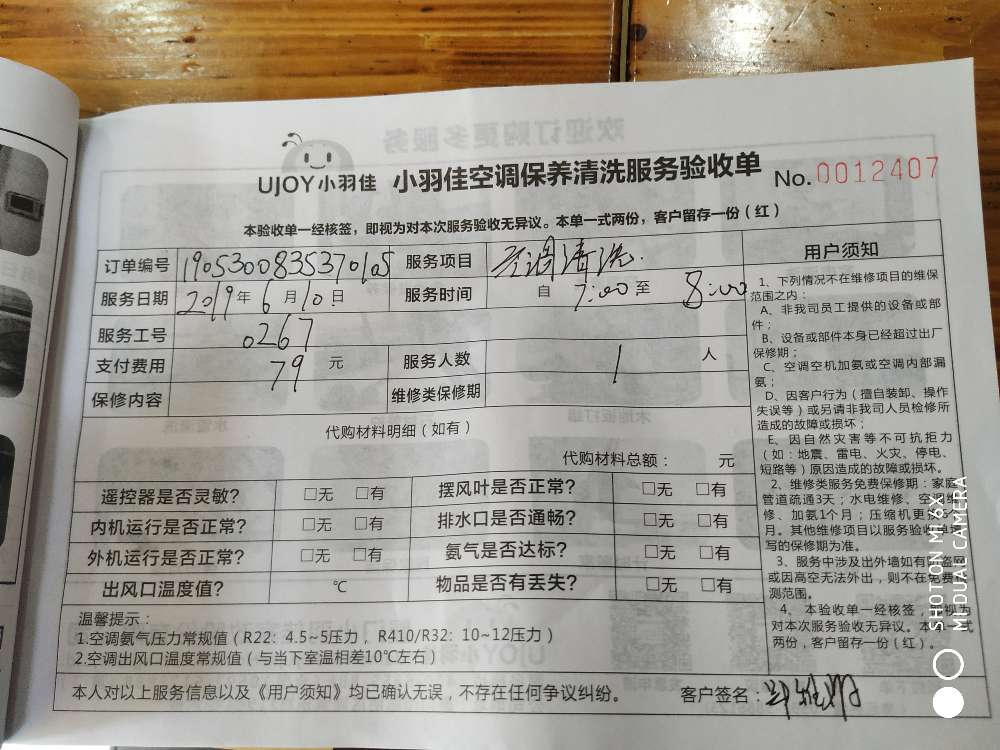 UJOY小羽佳 小羽佳空调保养清洗服务验收单 No.0012407
本验收单一经核签，即视为对本次服务验收无异议。本单一式两份，客户留存一份（红）
订单编号 1905300835370105 服务项目 空调清洗.
服务日期 2019年6月10日 服务时间 自 7:00 至 8:00
服务工号 0267
支付费用 79 元 服务人数 1 人
保修内容 维修类保修期
代购材料明细（如有）
代购材料总额： 元
遥控器是否灵敏? □无 □有 摆风叶是否正常? □无 □有
内机运行是否正常? □无 □有 排水口是否通畅? □无 □有
外机运行是否正常? □无 □有 氨气是否达标? □无 □有
出风口温度值? ℃ 物品是否有丢失? □无 □有
温馨提示：
1.空调氨气压力常规值（R22：4.5~5压力，R410/R32：10~12压力）
2.空调出风口温度常规值（与当下室温相差10℃左右）
本人对以上服务信息以及《用户须知》均已确认无误，不存在任何争议纠纷。 客户签名：
用户须知
1、下列情况不在维修项目的维保
范围之内：
A、非我司员工提供的设备或部
件；
B、设备或部件本身已经超过出厂
保修期；
C、空调空机加氨或空调内部漏
氨；
D、因客户行为（擅自装卸、操作
失误等）或另请非我司人员检修所
造成的故障或损坏；
E、因自然灾害等不可抗拒力
（如：地震、雷电、火灾、停电、
短路等）原因造成的故障或损坏。
2、维修类服务免费保修期：家庭
管道疏通3天；水电维修、空
修、加氨1个月；压缩机更
月。其他维修项目以服务验收单
写的保修期为准。
3、服务中涉及出外墙如有防盗网
或因高空无法外出，则不在免费
测范围。
4、本验收单一经核签，即视为
对本次服务验收无异议。本单一式
两份，客户留存一份（红）。
SHOT ON MI 6X
MI DUAL CAMERA